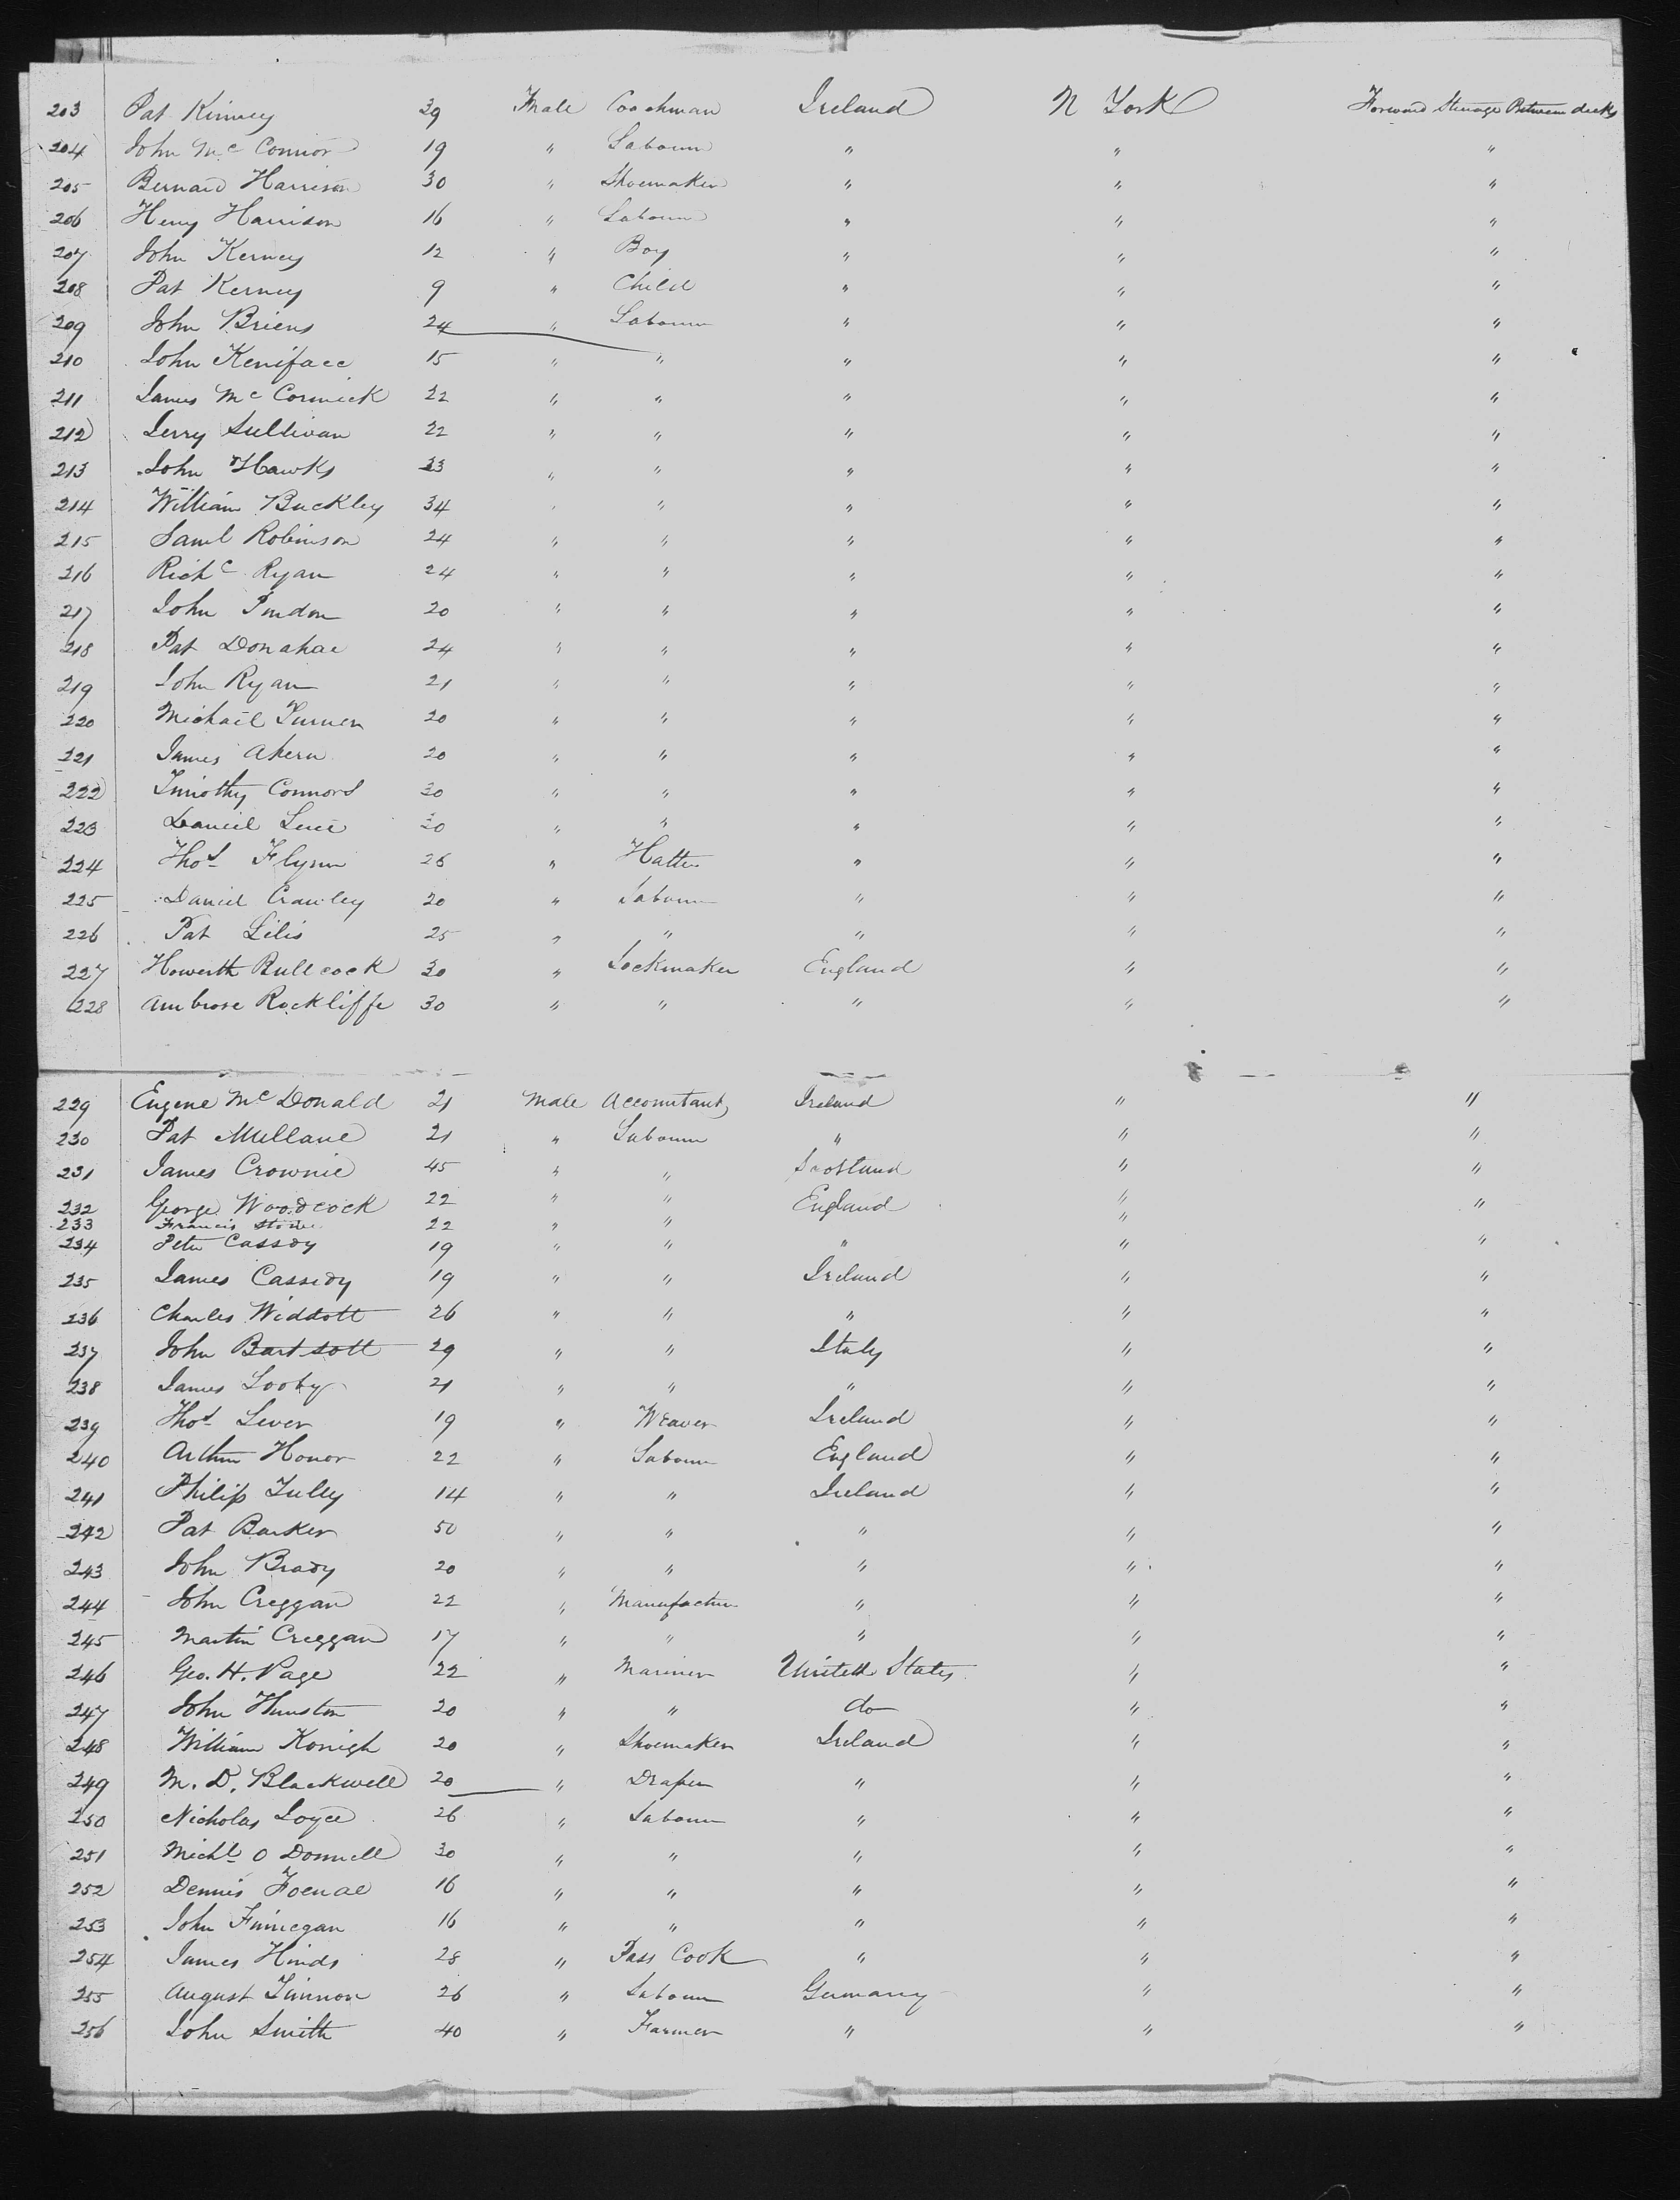 203 Pat Kinney 39 Male Coachman Ireland N York Forward Steerage Between decks
204 John Mc Connor 19 " Labourer " " "
205 Bernard Harrison 30 " Shoemaker " " "
206 Henry Harrison 16 " Labourer " " "
207 John Kerney 12 " Boy " " "
208 Pat Kerney 9 " Child " " "
209 John Briens 24 " Labourer " " "
210 John Keniface 15 " " " " "
211 James Mc Cormick 22 " " " " "
212 Jerry Sullivan 22 " " " " "
213 John Hawks 23 " " " " "
214 William Buckley 34 " " " " "
215 Saml Robinson 24 " " " " "
216 Richd Ryan 24 " " " " "
217 John 20 " " " " "
218 Pat Donahae 24 " " " " "
219 John Ryan 21 " " " " "
220 Michael Turner 20 " " " " "
221 James Ahern 20 " " " " "
222 Timothy Connors 30 " " " " "
223 Daniel 30 " " " " "
224 Thos Flynn 26 " Hatter " " "
225 Daniel Crawley 20 " Labourer " " "
226 Pat Lilis 25 " " " " "
227 Howerth Bullcock 30 " Lockmaker England " "
228 Ambrose Rockliffe 30 " " " " "
229 Eugene Mc Donald 21 Male Accountant Ireland " "
230 Pat Mullane 21 " Labourer " " "
231 James Crownie 45 " " Scotland " "
232 George Woodcock 22 " " England " "
233 Francis Stone 22 " " "
234 Peter Cassdy 19 " " " " "
235 James Cassidy 19 " " Ireland " "
236 Charles Widdott 26 " " " " "
237 John Bartsott 29 " " Italy " "
238 James Looby 21 " " " " "
239 Thos Lever 19 " Weaver Ireland " "
240 Arthur Honor 22 " Labourer England " "
241 Philip Tully 14 " " Ireland " "
242 Pat Barker 50 " " " " "
243 John Brady 20 " " " " "
244 John Creggan 22 " Manufacturer " " "
245 Martin Creggan 17 " " " " "
246 Geo. H. Page 22 " Mariner United States " "
247 John Hunston 20 " " do " "
248 William Konigh 20 " Shoemaker Ireland " "
249 M. D. Blackwell 20 " Draper " " "
250 Nicholas Joyce 26 " Labourer " " "
251 Michl O Donnell 30 " " " " "
252 Dennis 16 " " " " "
253 John Finnegan 16 " " " " "
254 James Hinds 28 " Pass Cook " " "
255 August Timnon 26 " Labourer Germany " "
256 John Smith 40 " Farmer " " "